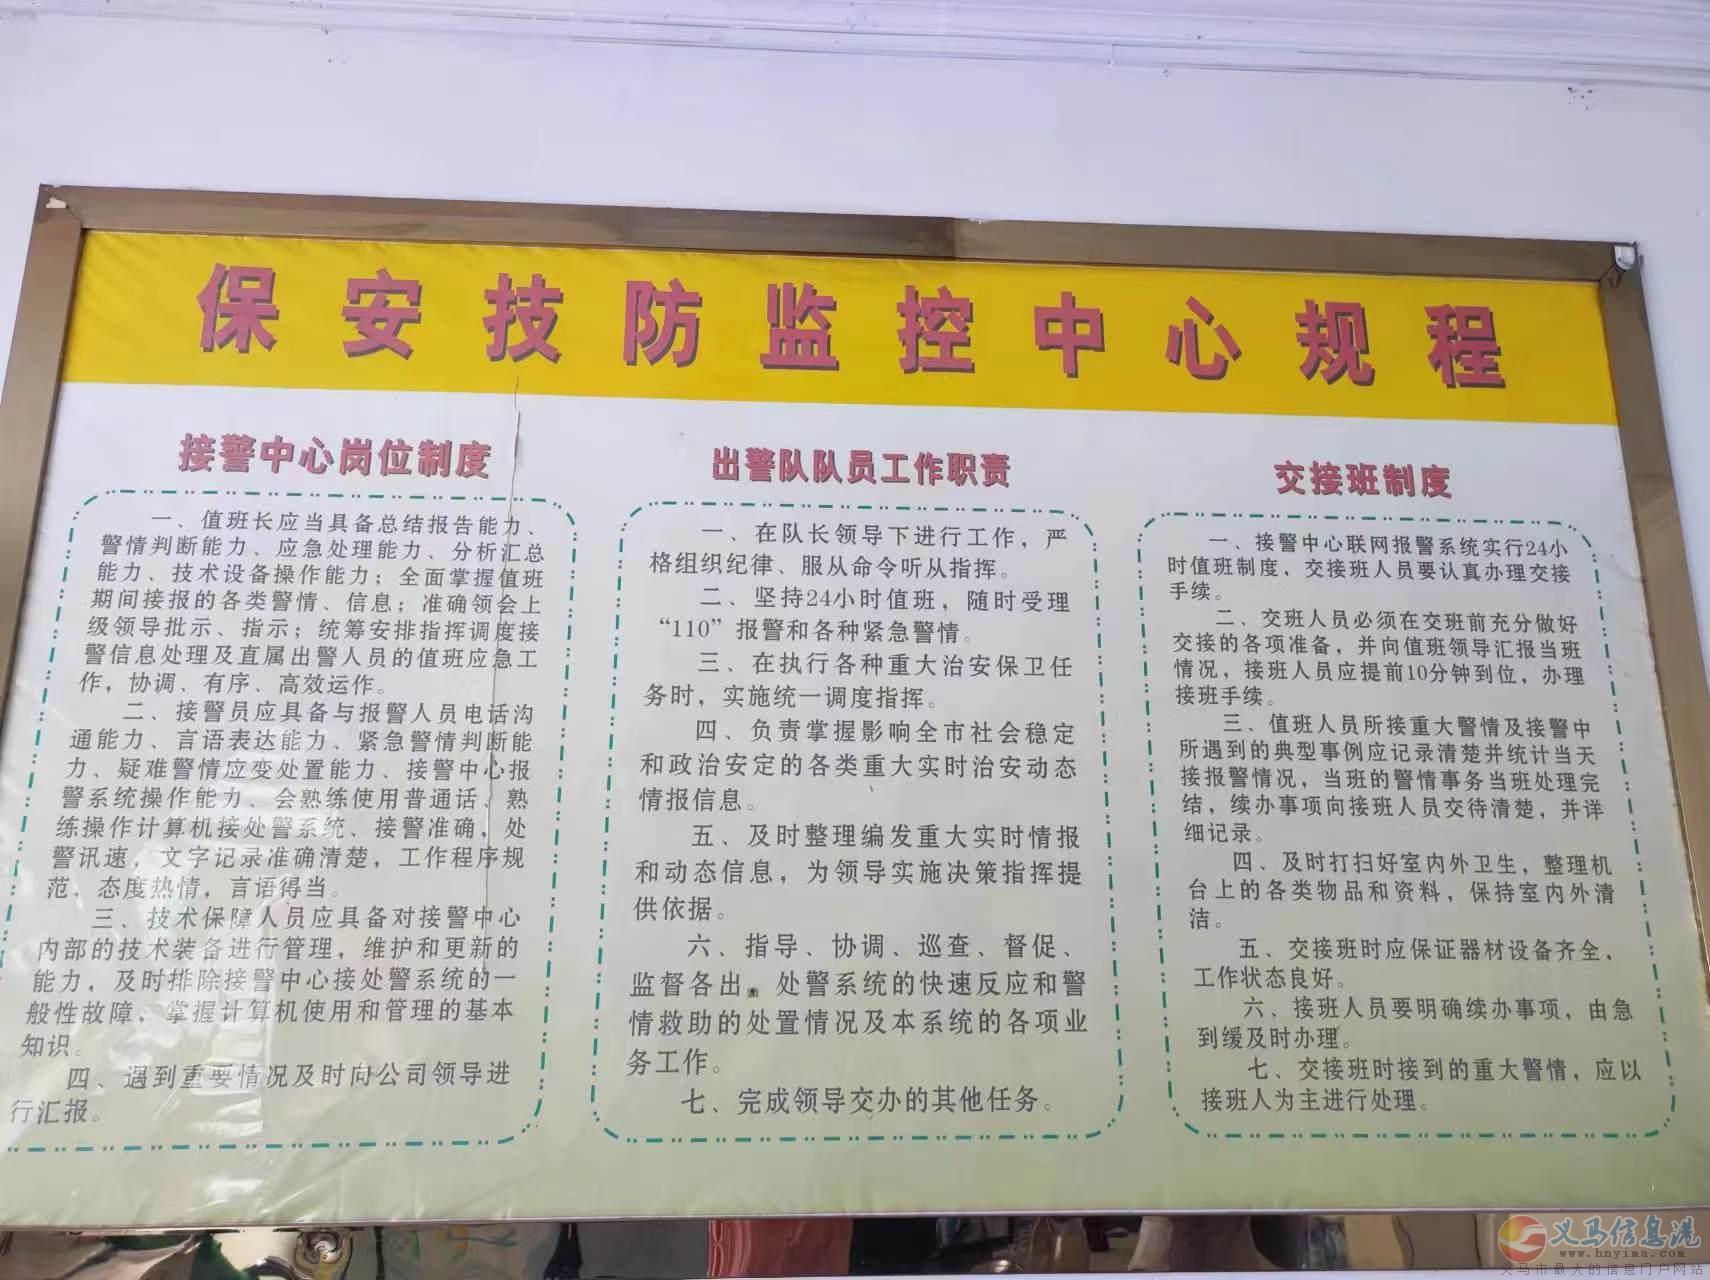 保安技防监控中心规程
接警中心岗位制度
一、值班长应当具备总结报告能力、
警情判断能力、应急处理能力、分析汇总
能力、技术设备操作能力；全面掌握值班
期间接报的各类警情、信息；准确领会上
级领导批示、指示；统筹安排指挥调度接
警信息处理及直属出警人员的值班应急工
作，协调、有序、高效运作。
二、接警员应具备与报警人员电话沟
通能力、言语表达能力、紧急警情判断能
力、疑难警情应变处置能力、接警中心报
警系统操作能力、会熟练使用普通话、熟
练操作计算机接处警系统、接警准确，处
警讯速，文字记录准确清楚，工作程序规
范，态度热情，言语得当。
三、技术保障人员应具备对接警中心
内部的技术装备进行管理，维护和更新的
能力，及时排除接警中心接处警系统的一
般性故障，掌握计算机使用和管理的基本
知识。
四、遇到重要情况及时向公司领导进
行汇报。
出警队队员工作职责
一、在队长领导下进行工作，严
格组织纪律、服从命令听从指挥。
二、坚持24小时值班，随时受理
“110”报警和各种紧急警情。
三、在执行各种重大治安保卫任
务时，实施统一调度指挥。
四、负责掌握影响全市社会稳定
和政治安定的各类重大实时治安动态
情报信息。
五、及时整理编发重大实时情报
和动态信息，为领导实施决策指挥提
供依据。
六、指导、协调、巡查、督促、
监督各出。处警系统的快速反应和警
情救助的处置情况及本系统的各项业
务工作。
七、完成领导交办的其他任务。
交接班制度
一、接警中心联网报警系统实行24小
时值班制度，交接班人员要认真办理交接
手续。
二、交班人员必须在交班前充分做好
交接的各项准备，并向值班领导汇报当班
情况，接班人员应提前10分钟到位，办理
接班手续。
三、值班人员所接重大警情及接警中
所遇到的典型事例应记录清楚并统计当天
接报警情况，当班的警情事务当班处理完
结，续办事项向接班人员交待清楚，并详
细记录。
四、及时打扫好室内外卫生，整理机
台上的各类物品和资料，保持室内外清
洁。
五、交接班时应保证器材设备齐全，
工作状态良好。
六、接班人员要明确续办事项，由急
到缓及时办理。
七、交接班时接到的重大警情，应以
接班人为主进行处理。
义马信息港
www.hnyima.com
义马市最大的信息门户网站